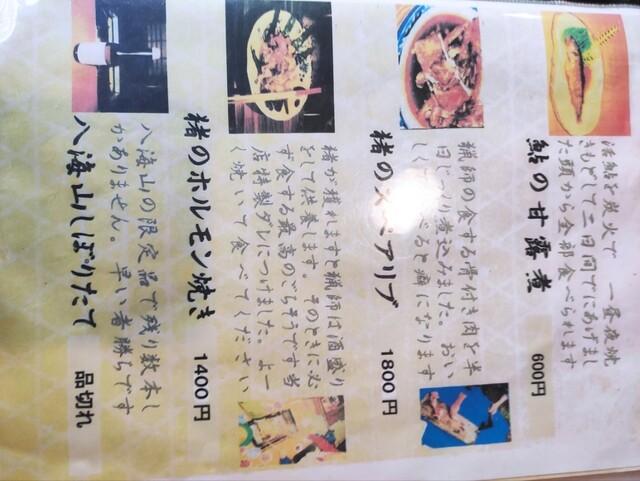 活鮎を炭火で 一昼夜焼
きもどして二日間でにあげまし
た頭から全部食べられます
鮎の甘露煮 600円
猟師の食する骨付き肉を半
日じっくり煮込みました。おい
しくべると癖になります
猪のスペアリブ 1800円
猪が獲れますと猟師は酒盛り
をして供養します。そのときに必
ず食する最高のごちそうです当
店特製ダレにつけました。よー
く焼いて食べてください
猪のホルモン焼き 1400円
八海山の限定品で残り数本し
かありません。早い者勝ちです
八海山しぼりたて 品切れ